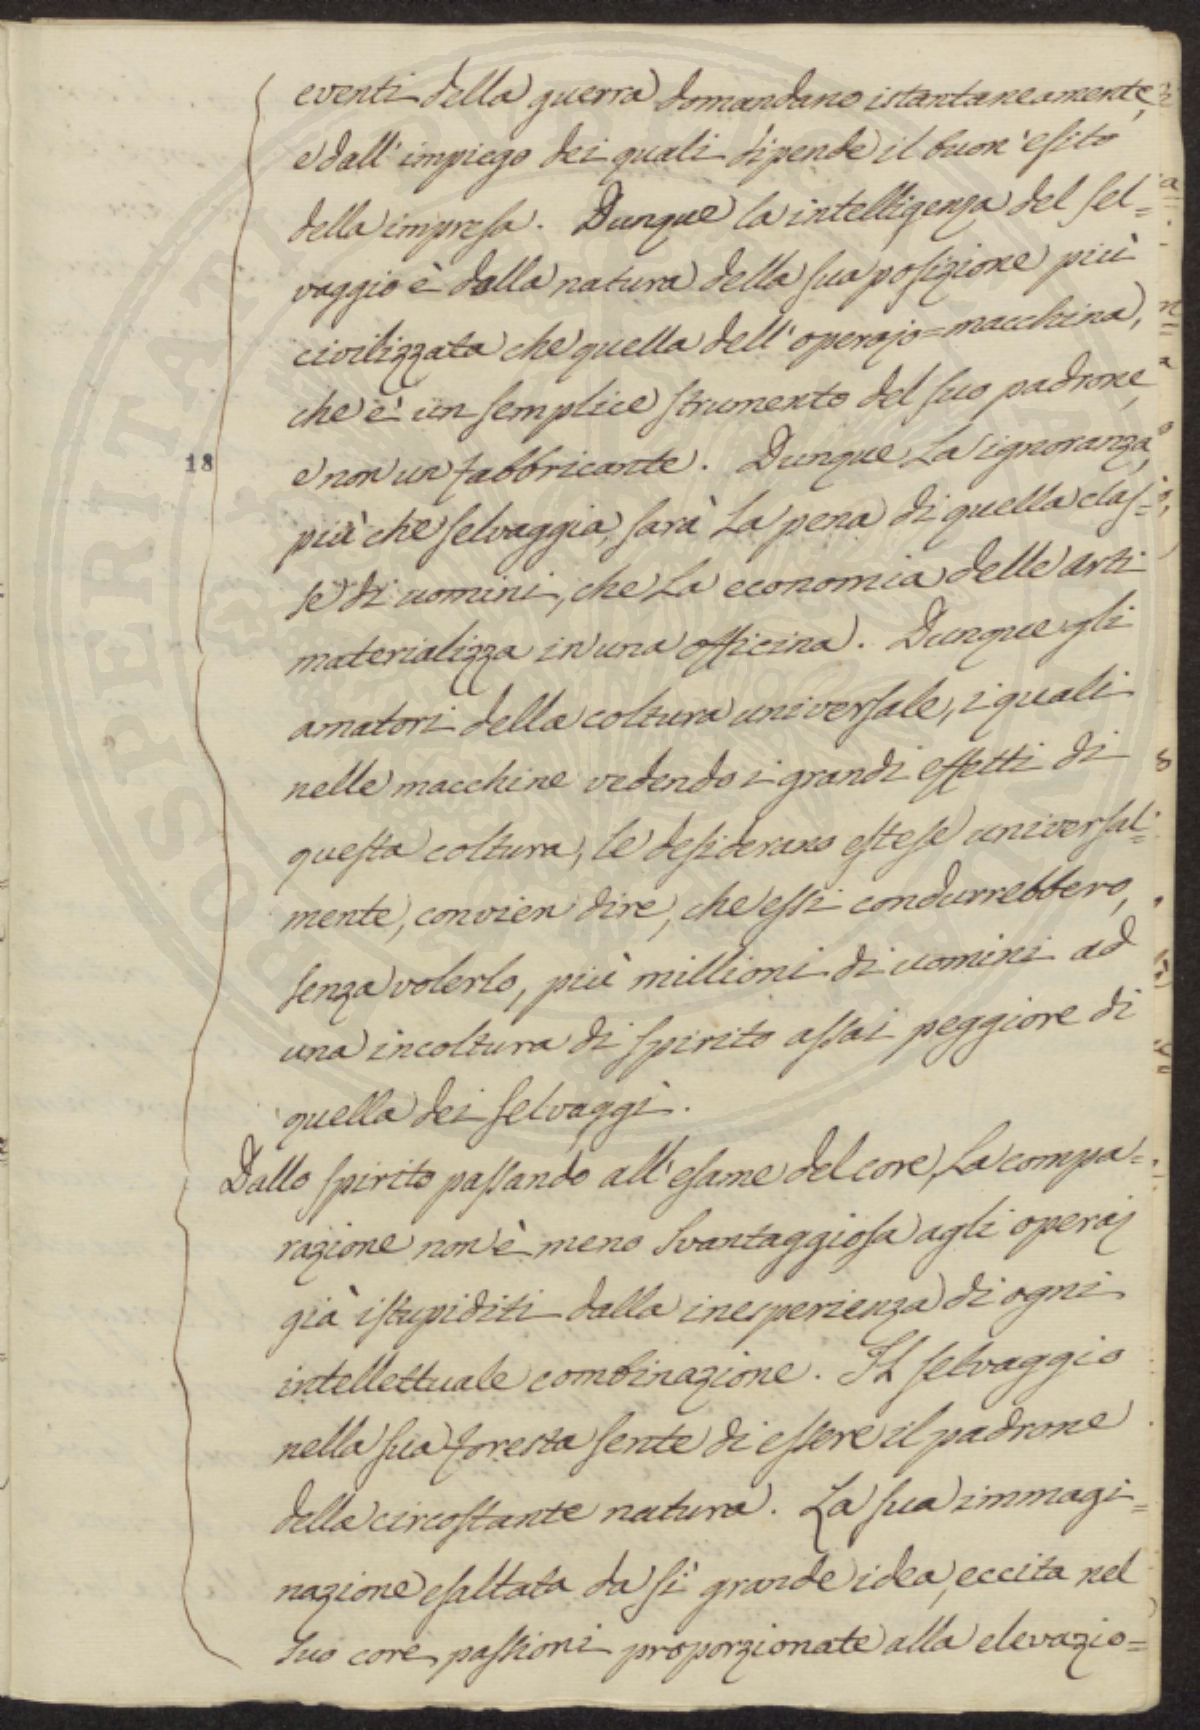 eventi della guerra domandano istantaneamente,
e dall' impiego dei quali dipende il buon' esito
della impresa. Dunque la intelligenza del sel=
vaggio è dalla natura della sua posizione più
civilizzata che quella dell' operajo=macchina,
che è un semplice strumento del suo padrone,
18
e non un fabbricante. Dunque La ignoranza,
più che selvaggia, sarà La pena di quella clas=
se di uomini, che La economia delle arti
materializza in una officina. Dunque gli
amatori della coltura universale, i quali
nelle macchine vedendo i grandi effetti di
questa coltura, le desiderano estese universal=
mente, convien dire, che essi condurrebbero,
senza volerlo, più millioni di uomini ad
una incoltura di spirito assai peggiore di
quella dei selvaggi.
Dallo spirito passando all' esame del core, La compa=
razione non è meno svantaggiosa agli operaj
già istupiditi dalla inesperienza di ogni
intellettuale combinazione. Il selvaggio
nella sua foresta sente di essere il padrone
della circostante natura. La sua immagi=
nazione esaltata da sì grande idea, eccita nel
suo core passioni proporzionate alla elevazio=